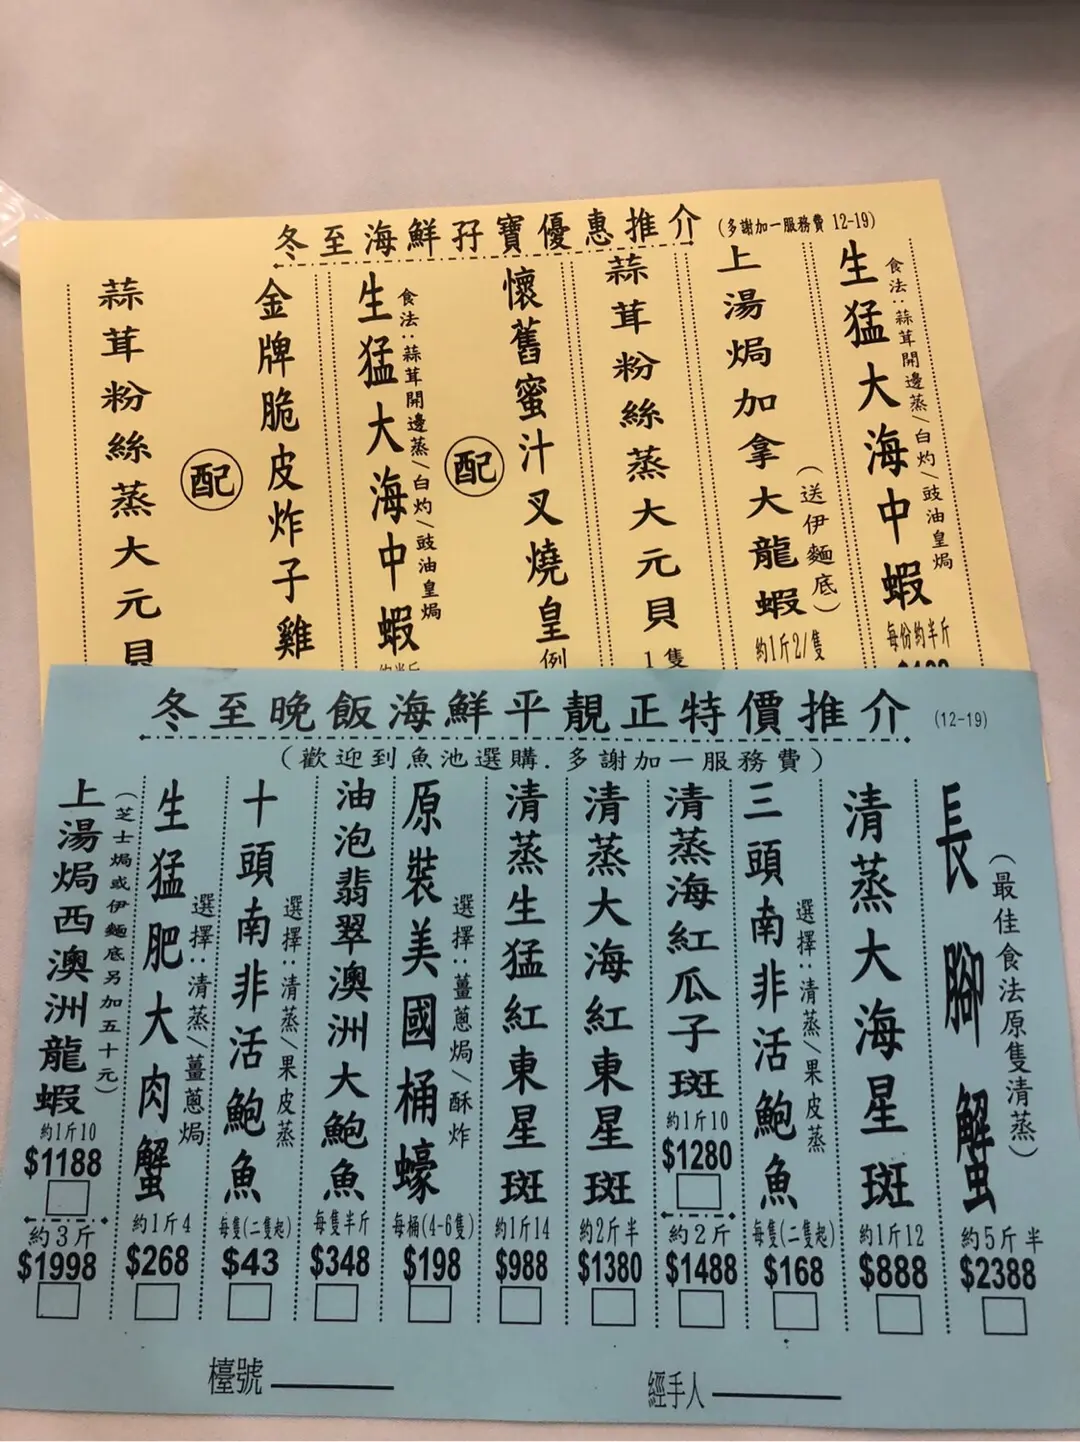 冬至海鮮孖寶優惠推介 (多謝加一服務費 12-19)
生猛大海中蝦
食法:蒜茸開邊蒸/白灼/豉油皇焗
每份約半斤
上湯焗加拿大龍蝦
(送伊麵底)
約1斤2/隻
蒜茸粉絲蒸大元貝
1隻
懷舊蜜汁叉燒皇
例
配
生猛大海中蝦
食法:蒜茸開邊蒸/白灼/豉油皇焗
金牌脆皮炸子雞
配
蒜茸粉絲蒸大元貝
冬至晚飯海鮮平靚正特價推介 (12-19)
(歡迎到魚池選購.多謝加一服務費)
長腳蟹
(最佳食法原隻清蒸)
約5斤半
$2388
清蒸大海星斑
約1斤12
$888
三頭南非活鮑魚
選擇:清蒸/果皮蒸
每隻(二隻起)
$168
清蒸海紅瓜子斑
約1斤10
$1280
約2斤
$1488
清蒸大海紅東星斑
約2斤半
$1380
清蒸生猛紅東星斑
約1斤14
$988
原裝美國桶蠔
選擇:薑蔥焗/酥炸
每桶(4-6隻)
$198
油泡翡翠澳洲大鮑魚
每隻半斤
$348
十頭南非活鮑魚
選擇:清蒸/果皮蒸
每隻(二隻起)
$43
生猛肥大肉蟹
選擇:清蒸/薑蔥焗
約1斤4
$268
上湯焗西澳洲龍蝦
(芝士焗或伊麵底另加五十元)
約1斤10
$1188
約3斤
$1998
檯號
經手人